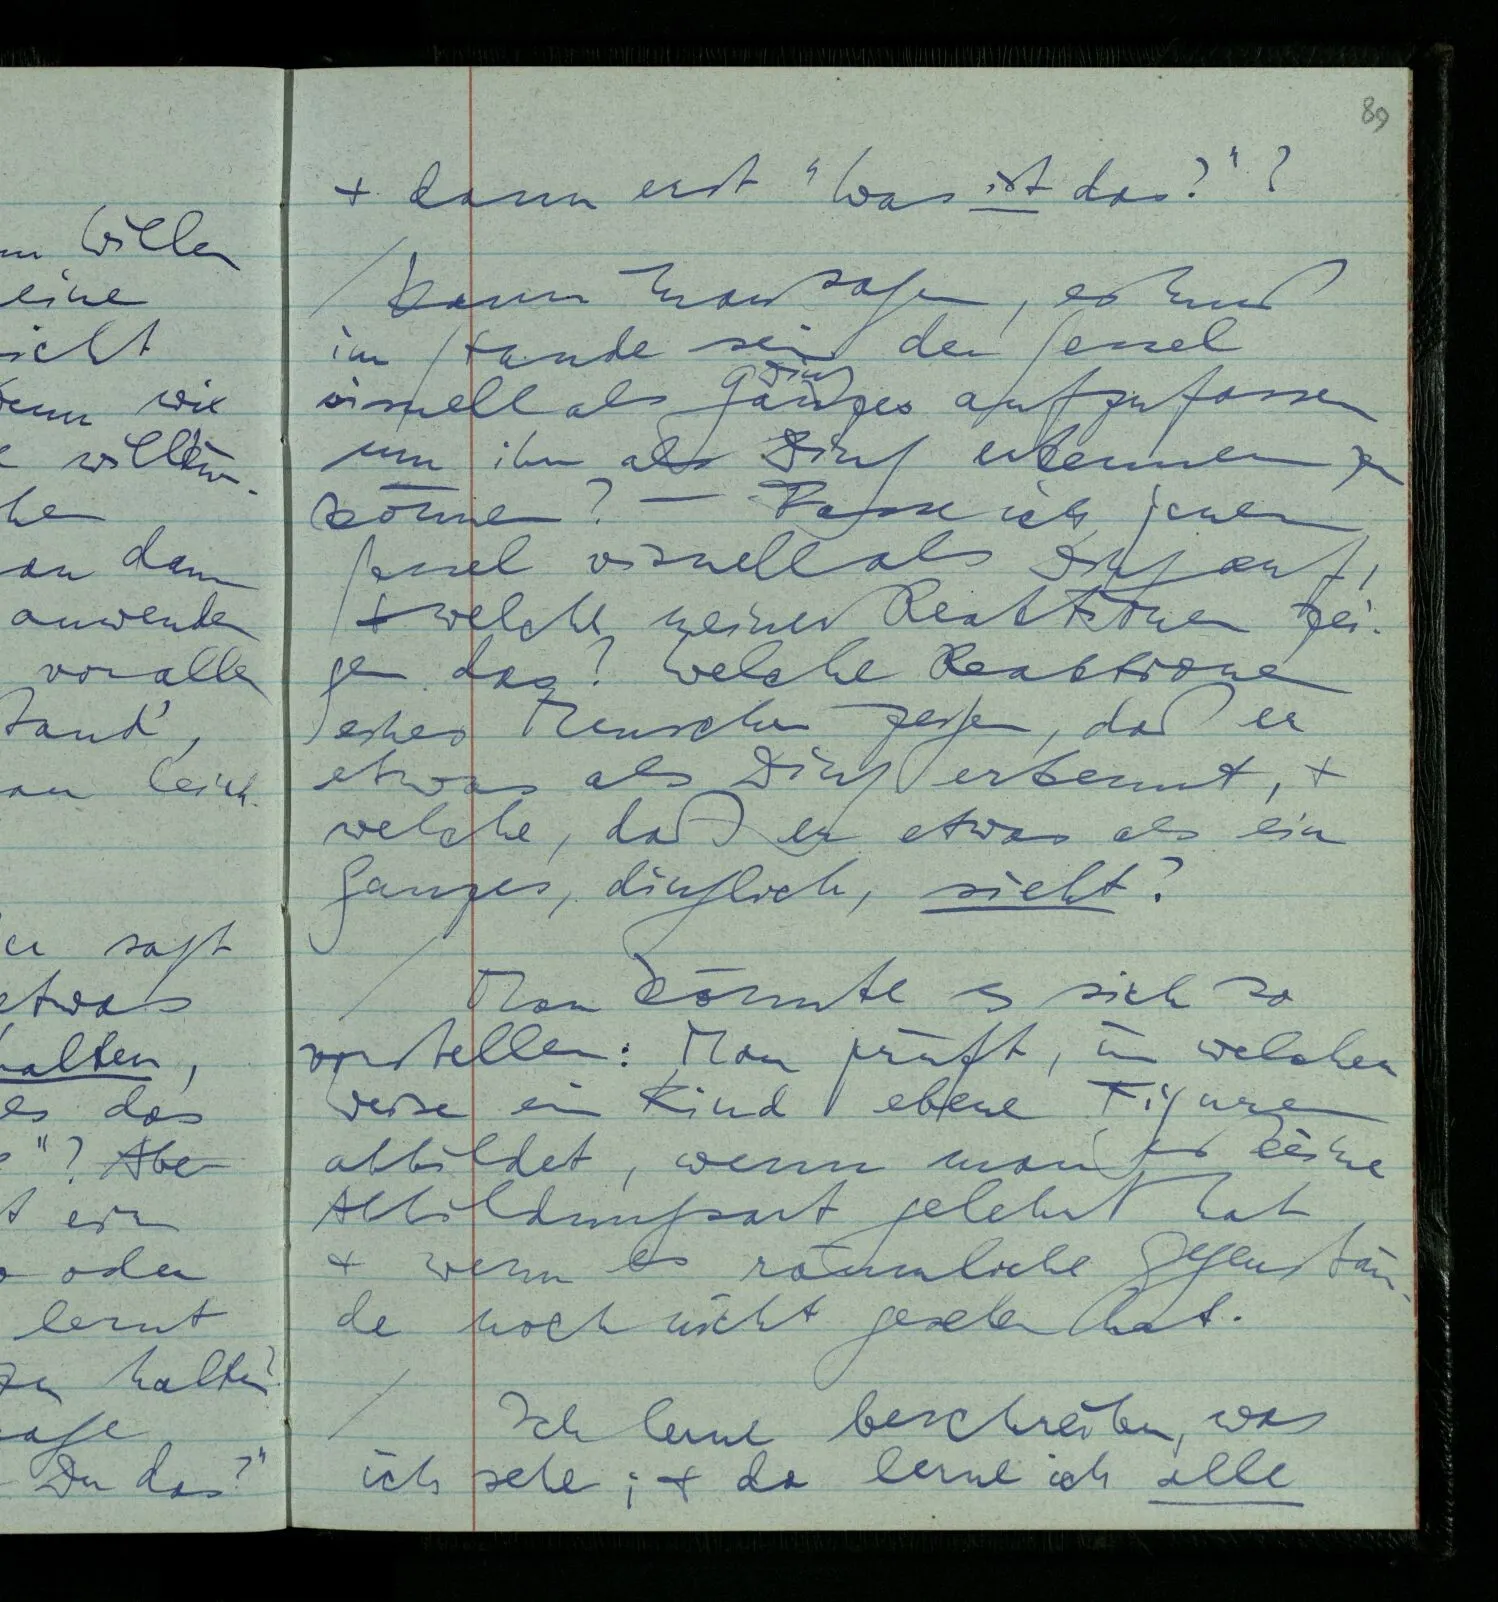 m Willen
eine
icht
denn wie
e willkür-
he
an dann
anwenden
vor allem
tand',
an leich-
er sagt
etwas
halten,
es das
"? Aber
t ein
o oder
lernt
zu halten?
age
Du das?"
89
+ dann erst "Was ist das?"?
/ Kann man sagen, es muß
im Stande sein den Sessel
visuell als Ganzes Ding aufzufassen
um ihn als Ding erkennen zu
können? — Fasse ich jenen
Sessel visuell als Ding auf,
+ welche meiner Reaktionen zei-
gen das? Welche Reaktionen
eines Menschen zeigen, daß er
etwas als Ding erkennt, +
welche, daß er etwas als ein
Ganzes, dinglich, sieht?
/ Man könnte es sich so
vorstellen: Man prüft, in welcher
Weise ein Kind ebene Figuren
abbildet, wenn man es keine
Abbildungsart gelehrt hat,
+ wenn es räumliche Gegenstän-
de noch nicht gesehen hat.
/ Ich lerne beschreiben, was
ich sehe; + da lerne ich alle